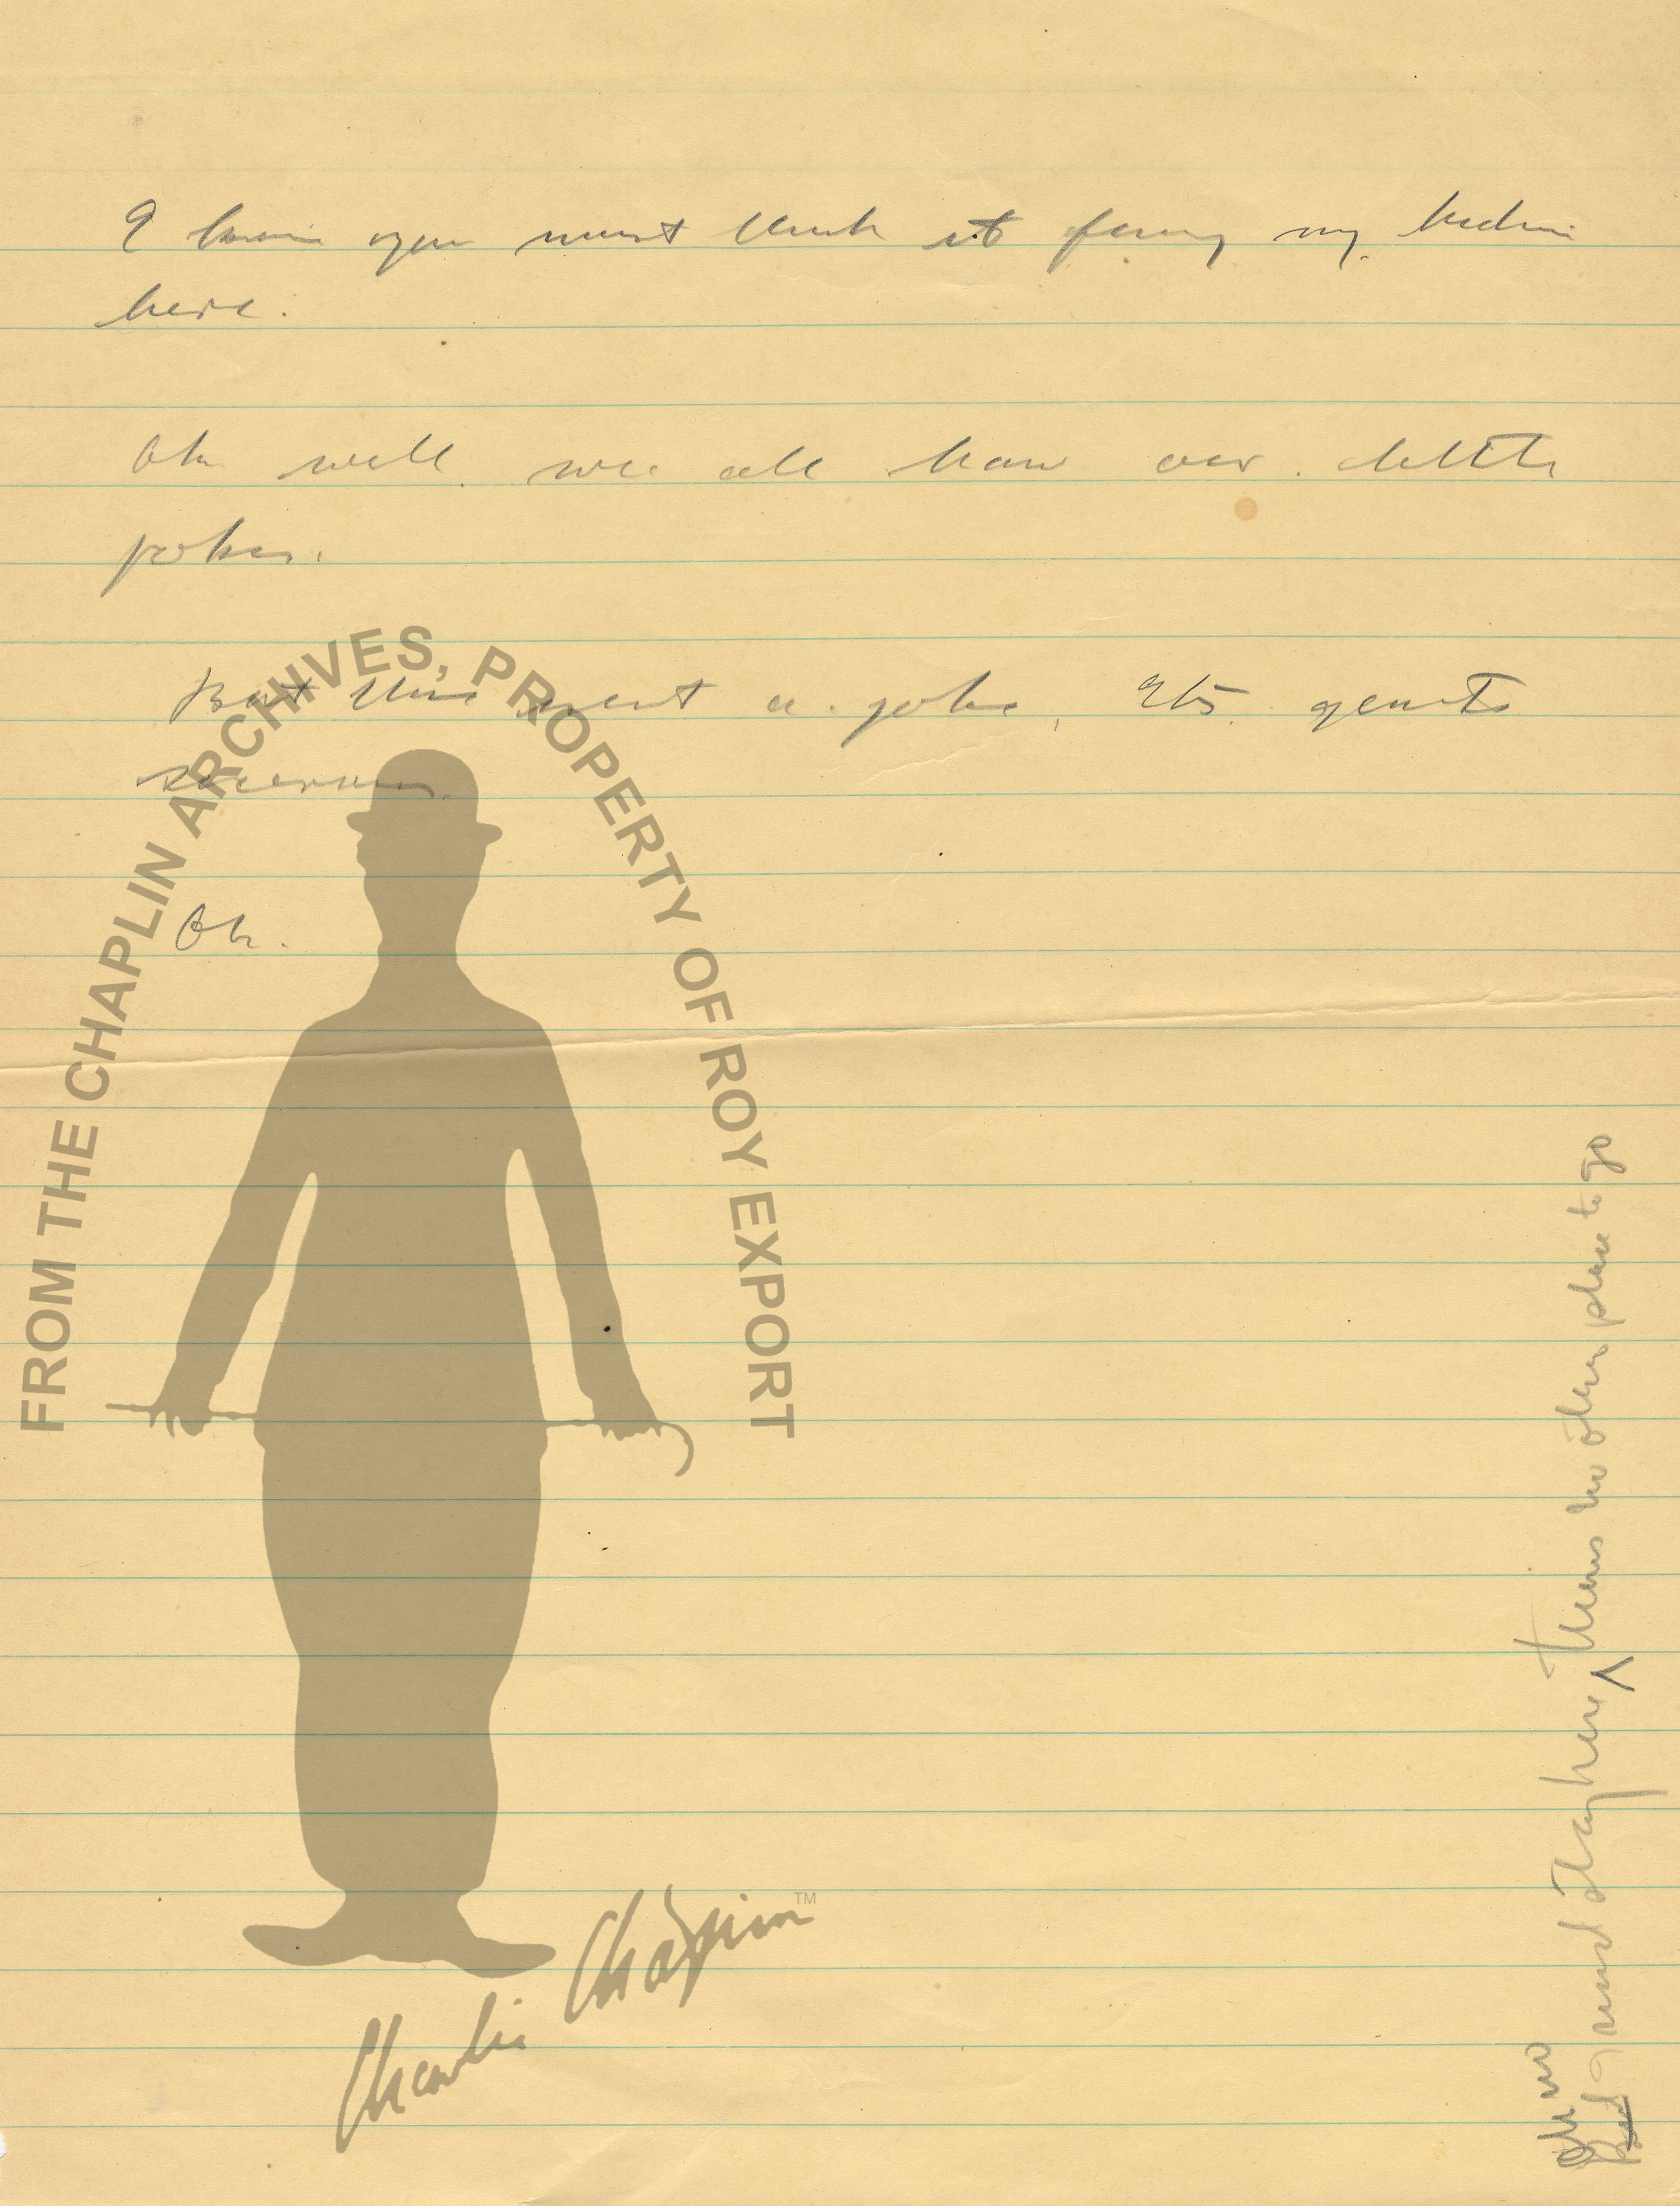 I know you must think it funny my hiding
here.
Oh well. we all have our little
jokes.
But this isnt a joke, Its quite
serious.
Oh.
FROM THE CHAPLIN ARCHIVES, PROPERTY OF ROY EXPORT
Charlie Chaplin TM
Oh no
But I must stay here, theres no other place to go